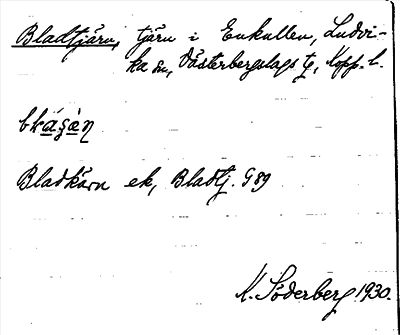 Bladtjärn, tjärn i Enkullen, Ludvi-
ka sn, Västerbergslags tg, Kopp. l.
Bladkärn ek, Bladtj. G 89
K. Söderberg 1930.